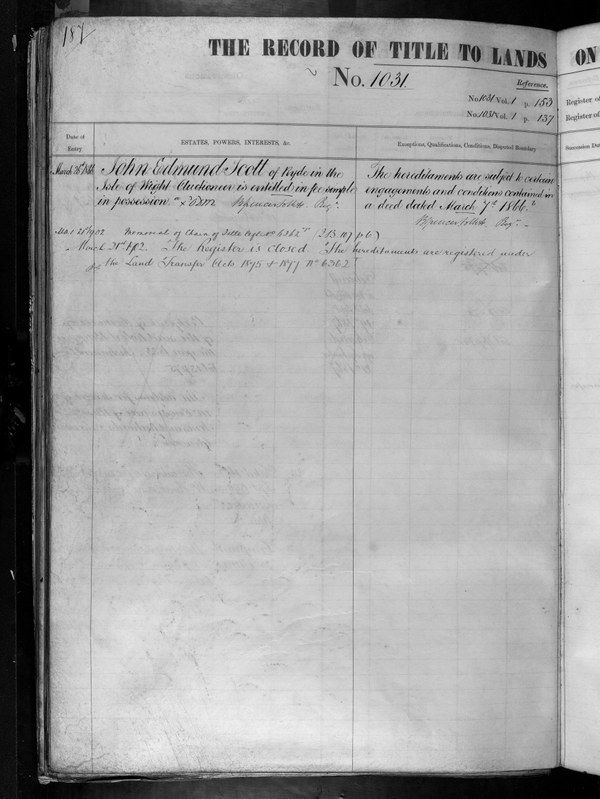 187
THE RECORD OF TITLE TO LANDS
ON
No. 1031
Reference.
No. 1031 Vol. 1 p. 153
No. 1031 Vol. 1 p. 137
Register of
Register of
Date of
Entry
ESTATES, POWERS, INTERESTS, &c.
Exceptions, Qualifications, Conditions, Disputed Boundary
Succession Du
March 26 1866
John Edmund Scott of Ryde in the
Isle of Wight Auctioneer is entitled in fee simple
in possession.
Spencer Follett Regr.
The hereditaments are subject to certain
engagements and conditions contained in
a deed dated March 7th 1866.
Spencer Follett Regr.
Mar 21st 1902 Memorial of Claim of Title No 6362
March 21st 1902. The Register is closed. The hereditaments are registered under
the Land Transfer Acts 1875 & 1897 No 6362